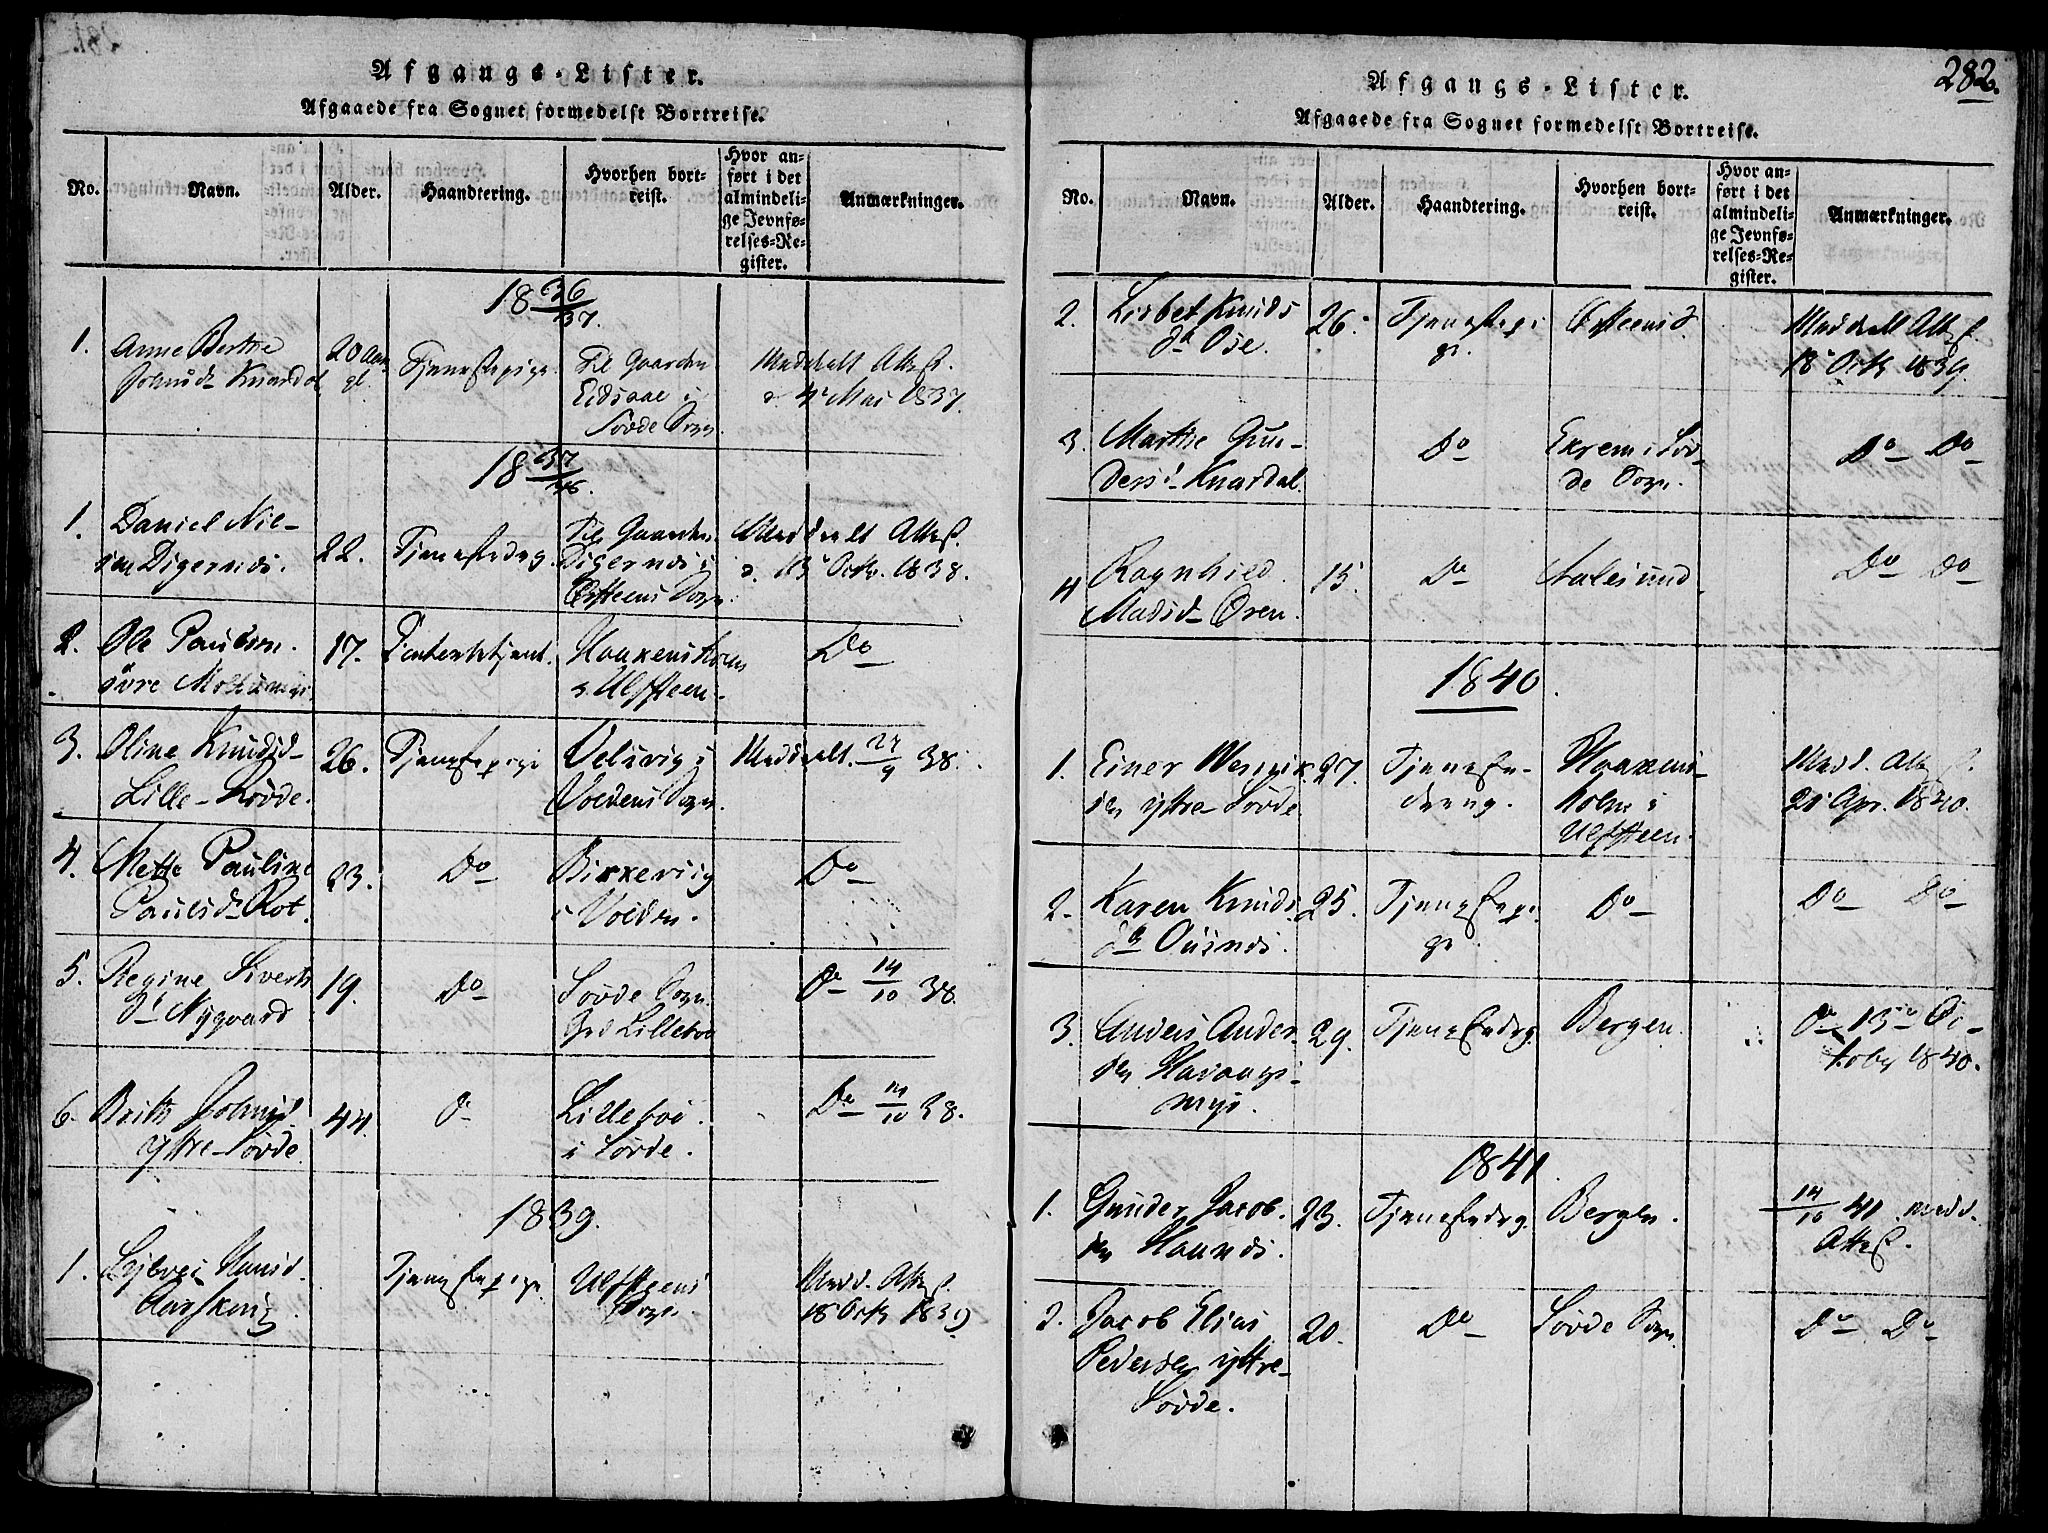 Afgangs-Lister.
Afgaaede fra Sognet formedelst Bortreise.
No. Navn. Alder. Haandtering. Hvorhen bortreist. Hvor anført i det almindelige Jevnførelses-Register. Anmærkninger.
18 36/37.
1. Anne Berthe Johnsd. Knardal 20 Aar gl. Tjenestepige. Til Gaarden Eidsaae i Søvde Sogn Meddeelt Attest. d. 4 Mai 1837.
18 37/38.
1. Daniel Niel-
sen Digernes. 22. Tjenestedrg. Til Gaarden Digernes i Ørsteens Sogn. Meddeelt Attest. d. 13 Octbr. 1838.
2. Ole Paulsen. 17. Haaxensholm i Ulfsteen. Do
3. Oline Knudsd. Lille-Søvde. 26. Tjenestepige Velsvig i Voldens Sogn. Meddeelt. 27/9 38.
4. Mette Pauline Paulsd. Rot. 23. Do Birkevig i Volden. Do
5. Regine Siverts d. Nygaard 19. Do Søvde Sogn. Grd Lillebøe Do 14/10 38.
6. Brith Johnsd. yttre-Søvde. 44. Do Lillebøe i Søvde. Do 14/10 38.
1839.
1. Hansd. Aarskoug. Tjenestepige. Ulfsteens Sogn. Medd. Attest. 18 Octb 1839
282.
Afgangs-Lister.
Afgaaede fra Sognet formedelst Bortreise.
No. Navn. Alder. Haandtering. Hvorhen bortreist. Hvor anført i det almindelige Jevnførelses-Register. Anmærkninger.
2. Lisbet Knuds dr. Ose. 26. Tjenestepige. Ørsteens S. Meddeelt Attest. 18 Octb 1839.
3. Marthe Gun-
dersd. Knardal. Do Ekrem i Søv-
de Sogn. Do Do
4 Ragnhild Madsd. Øren. 15. Do Aalesund Do Do
1840.
1. Einer yttre-Søvde 27. Tjeneste-
dreng. Haaxens-
holm i Ulfsteen. Medd. Attest. 21 Apr. 1840.
2. Karen Knuds. dr. 25. Tjenestepi-
ge Do Do Do
3. Anders Ander-
sen 29. Tjenestedrg. Bergen. Do 13 Oc-
tober 1840.
1841.
1. Gunder Jacob-
sen Haunes. 23. Tjenestedrg. Bergen. 14/10 41 medd. Attest.
2. Jacob Elias Pedersen yttre-
Søvde. 20. Do Søvde Sogn Do Do